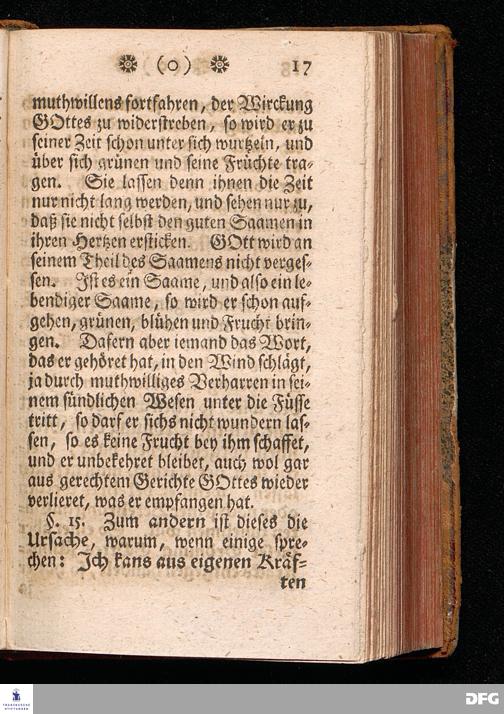 (o) 17
muthwillens fortfahren, der Wirckung
GOttes zu widerstreben, so wird er zu
seiner Zeit schon unter sich wurtzeln, und
über sich grünen und seine Früchte tra-
gen. Sie lassen denn ihnen die Zeit
nur nicht lang werden, und sehen nur zu,
daß sie nicht selbst den guten Saamen in
ihren Hertzen ersticken. GOtt wird an
seinem Theil des Saamens nicht verges-
sen. Ist es ein Saame, und also ein le-
bendiger Saame, so wird er schon auf-
gehen, grünen, blühen und Frucht brin-
gen. Dafern aber iemand das Wort,
das er gehöret hat, in den Wind schlägt,
ja durch muthwilliges Verharren in sei-
nem sündlichen Wesen unter die Füsse
tritt, so darf er sichs nicht wundern las-
sen, so es keine Frucht bey ihm schaffet,
und er unbekehret bleibet, auch wol gar
aus gerechtem Gerichte GOttes wieder
verlieret, was er empfangen hat.
§. 15. Zum andern ist dieses die
Ursache, warum, wenn einige spre-
chen: Ich kans aus eigenen Kräf-
ten
FRANCKESCHE
STIFTUNGEN
DFG